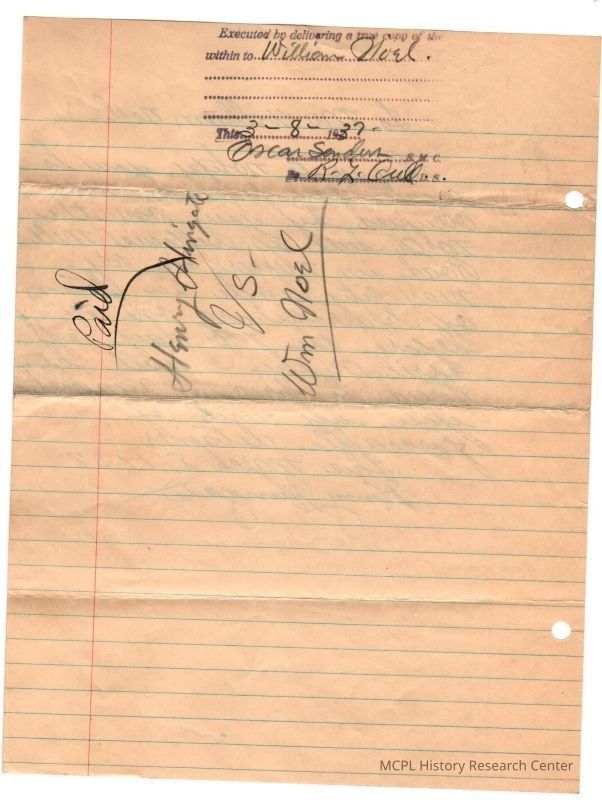 Executed by delivering a true copy of the
within to William Noel.
This 3-8-1937-
Oscar Sanders S. M. C.
By R. L. D. S.
Paid
Henry Wingate
VS-
Wm Noel
MCPL History Research Center